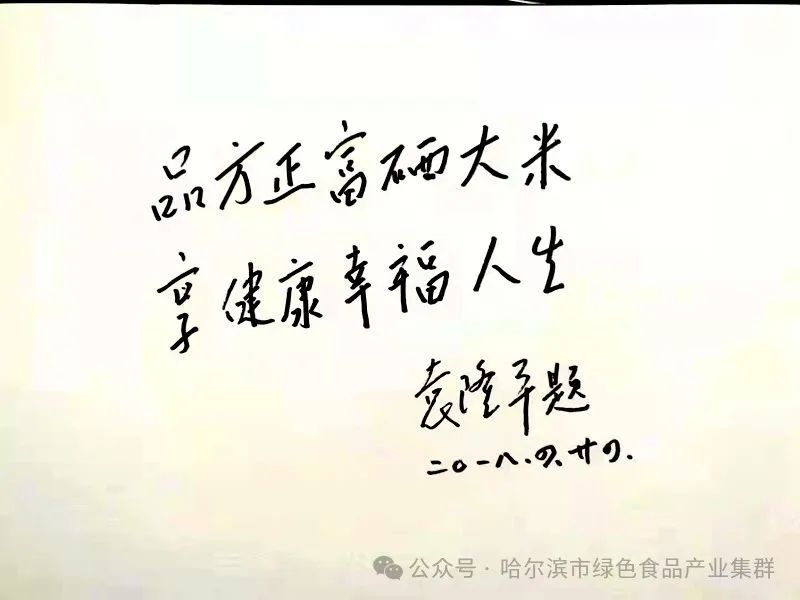 品方正富硒大米
享健康幸福人生
袁隆平题
二〇一八.四.廿四.
公众号·哈尔滨市绿色食品产业集群